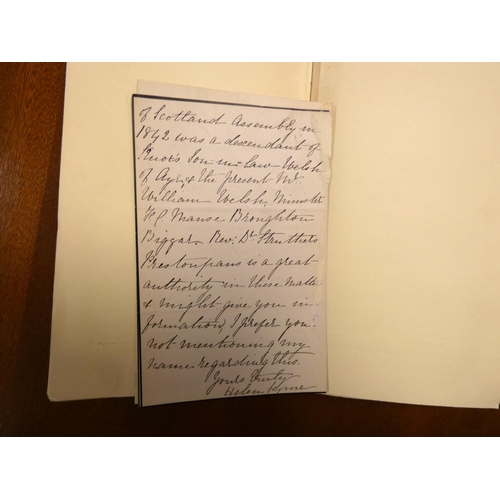 of Scotland Assembly in
1842 was a descendant of
Knox's Son-in-law Welsh
of Ayr, & the present Mr.
William Welsh, Minister
F C Manse Broughton
Biggar. Rev: Dr. Struthers
Prestonpans is a great
authority in these matters
& might give you in
formation, I prefer you
not mentioning my
name regarding this.
Yours Truly
Helen